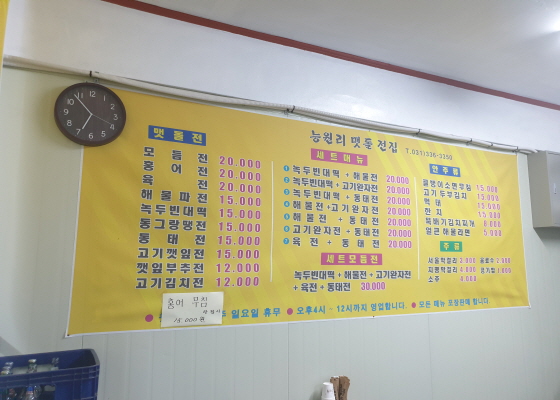 능원리 맷돌전집 T.031)336-3250
맷돌전
모듬전 20.000
홍어전 20.000
육전 20.000
해물파전 15.000
녹두빈대떡 15.000
동그랑땡전 15.000
동태전 15.000
고기깻잎전 15.000
깻잎부추전 12.000
고기김치전 12.000
세트메뉴
1 녹두빈대떡 + 해물전 20.000
2 녹두빈대떡 + 고기완자전 20.000
3 녹두빈대떡 + 동태전 20.000
4 해물전 + 고기완자전 20.000
5 해물전 + 동태전 20.000
6 고기완자전 + 동태전 20.000
7 육전 + 동태전 20.000
세트모듬전
녹두빈대떡 + 해물전 + 고기완자전
+ 육전 + 동태전 30.000
안주류
골뱅이소면무침 15.000
고기두부김치 15.000
먹태 15.000
한치 15.000
뚝배기김치찌개 8.000
얼큰해물라면 5.000
주류
소주 4.000
홍어 무침
15.000원
일요일 휴무 ● 오후4시 - 12시까지 영업합니다. ● 모든 메뉴 포장판매 합니다
12
1
2
3
4
5
6
7
8
9
10
11